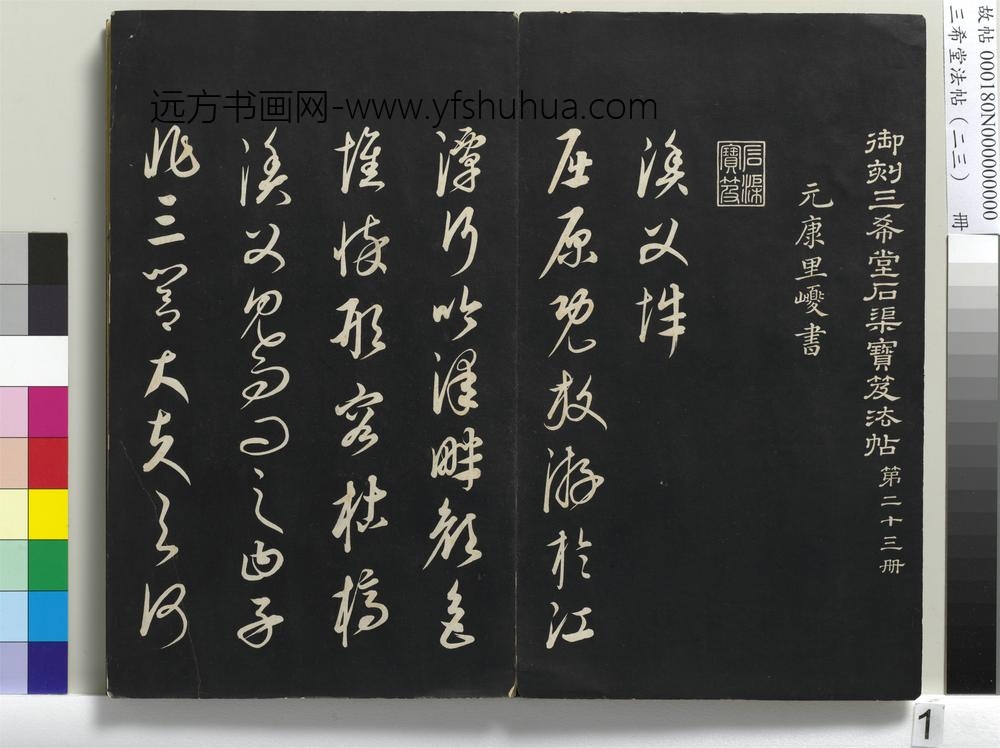 远方书画网-www.yfshuhua.com
故帖 000180N000000000
三希堂法帖（二三） 冊
御刻三希堂石渠寶笈法帖第二十三册
元康里巎書
石渠寶笈
漁父辭
屈原既放游於江
潭行吟澤畔顏色
憔悴形容枯槁
漁父見而問之曰子
非三閭大夫與何
1